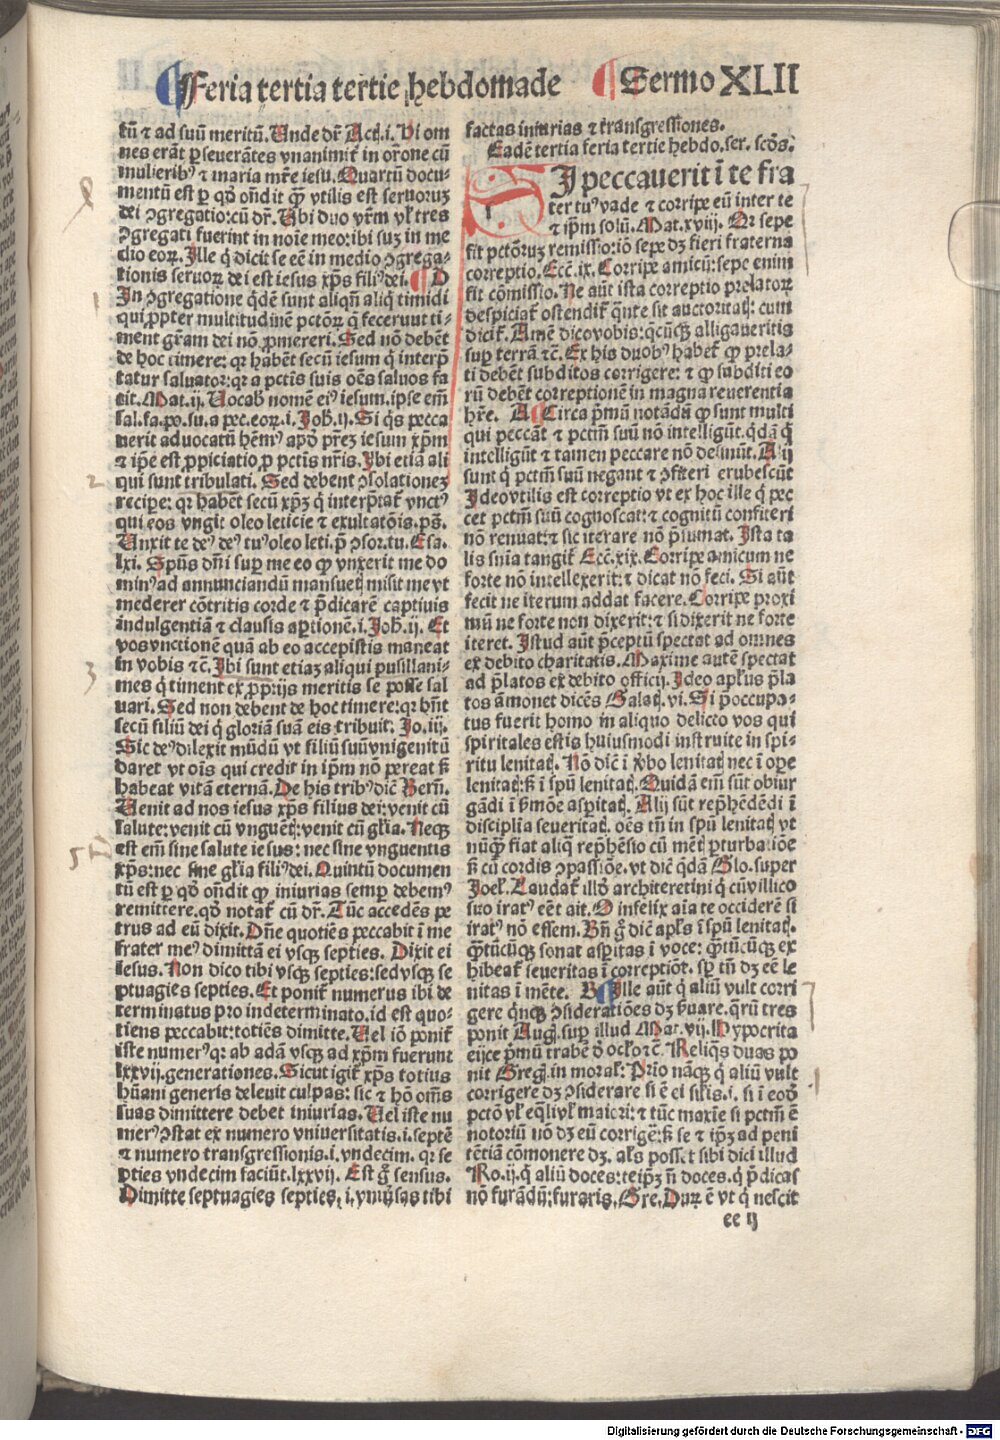 Feria tertia tertie hebdomade Sermo XLII
tũ ⁊ ad suũ meritũ. Unde dr̃ Act. i. Ubi om
nes erãt perseuerãtes vnanimit̃ in or̃one cũ
mulieribꝰ ⁊ maria mr̃e iesu. Quartũ docu-
mentũ est ꝑ qḋ oñdit ꝙ vtilis est seruoruꝫ
dei ꝯgregatio: cũ dr̃. Ubi duo vr̃m vl̃ tres
ꝯgregati fuerint in noĩe meo: ibi suꝫ in me
dio eoꝝ. Ille q̇ dicit se eẽ in medio ꝯgrega-
tionis seruoꝝ dei est iesus xp̃s filiꝰ dei. D
In ꝯgregatione q̃dẽ sunt aliqñ aliq̇ timidi
qui ꝓpter multitudinẽ pctõꝝ q̃ feceruut ti-
ment gr̃am dei nõ ꝓmereri. Sed nõ debẽt
de hoc timere: qꝛ habẽt secũ iesum q̇ interp̃
tatur saluator: qꝛ a pctĩs suis oẽs saluos fa
cit. Mat. ij. Uocab̃ nomẽ eiꝰ iesum. ipse em̃
sal. fa. po. su. a pec. eoꝝ. i. Joh̃. ij. Si q̇s pecca
uerit aduocatũ hẽmꝰ apḋ preꝫ iesum xp̃m
⁊ ip̃e est ꝓpiciatio ꝓ pctĩs nr̃is. Ibi etiã ali
qui sunt tribulati. Sed debent ꝯsolationeꝫ
recipe: qꝛ habẽt secũ xp̃ꝫ q̇ interp̃tat̃ vnctꝰ
qui eos vngit oleo leticie ⁊ exultatõis. p̃s.
Unxit te deꝰ deꝰ tuꝰ oleo leti. p̃ ꝯsor. tu. Esa.
lxi. Spũs dñi sup me eo ꝙ vnxerit me do
minꝰ ad annunciandũ mansuet̃ misit me vt
mederer cõtritis corde ⁊ p̃dicarẽ captiuis
indulgentiã ⁊ clausis aptionẽ. i. Joh̃. ij. Et
vos vnctionẽ quã ab eo accepistis maneat
in vobis ⁊c̃. Ibi sunt etiaꝫ aliqui pusillani-
mes q̇ timent ex ꝓprijs meritis se posse sal
uari. Sed non debent de hoc timere: qꝛ hñt
secũ filiũ dei q̇ gloriã suã eis tribuit. Jo. iij.
Sic deꝰ dilexit mũdũ vt filiũ suũ vnigenitũ
daret vt oĩs qui credit in ip̃m nõ pereat sꝫ
habeat vitã eternã. De his tribꝰ dic̃ Berñ.
Uenit ad nos iesus xp̃s filius dei: venit cũ
salute: venit cũ vnguẽt̃: venit cũ gl̃ia. Neqꝫ
est em̃ sine salute iesus: nec sine vnguentis
xp̃s: nec sine gl̃ia filiꝰ dei. Quintũ documen
tũ est ꝑ qḋ oñdit ꝙ iniurias semp debemꝰ
remittere. qḋ notat̃ cũ dr̃. Tũc accedẽs pe
trus ad eũ dixit. Dñe quotiẽs peccabit ĩ me
frater meꝰ dimittã ei vsqꝫ septies. Dixit ei
iesus. Non dico tibi vsqꝫ septies: sed vsqꝫ se
ptuagies septies. Et ponit̃ numerus ibi de
terminatus pro indeterminato. id est quo-
tiens peccabit: totiẽs dimitte. Uel iõ ponit̃
iste numerꝰ: qꝛ ab adã vsqꝫ ad xp̃m fuerunt
lxxvij. generationes. Sicut igit̃ xp̃s totius
hũani generis deleuit culpas: sic ⁊ hõ om̃s
suas dimittere debet iniurias. Uel iste nu
merꝰ ꝯstat ex numero vniuersitatis. i. septẽ
⁊ numero transgressionis. i. vndecim. qꝛ se
pties vndecim faciũt. lxxvij. Est g̊ sensus.
Dimitte septuagies septies. i. vniũsas tibi
factas iniurias ⁊ trãnsgressiones.
Eadẽ tertia feria tertie hebdo. ser. scḋs.
SI peccauerit ĩ te fra
ter tuꝰ vade ⁊ corripe eũ inter te
⁊ ip̃m solũ. Mat. xviij. Qꝛ sepe
fit pctõꝝ remissio: iõ sepe dꝫ fieri fraterna
correptio. Ecc̃. ix. Corripe amicũ: sepe enim
fit cõmissio. Ne aũt ista correptio prelatoꝝ
despiciat̃ ostendit̃ q̃nte sit auctoritat̃: cum
dicit̃. Amẽ dico vobis: q̃cũqꝫ alligaueritis
sup terrã ⁊c̃. Ex his duobꝰ habet̃ ꝙ prela-
ti debẽt subditos corrigere: ⁊ ꝙ subditi eo
rũ debẽt correptionẽ in magna reuerentia
hr̃e. A Circa p̃mũ notãdũ ꝙ sunt multi
qui peccãt ⁊ pctm̃ suũ nõ intelligũt. q̇dã q̇
intelligũt ⁊ tamen peccare nõ desinũt. Alij
sunt q̇ pctm̃ suũ negant ⁊ ꝯfiteri erubescũt
Ideo vtilis est correptio vt ex hoc ille q̇ pec
cet pctm̃ suũ cognoscat: ⁊ cognitũ confiteri
nõ renuat: ⁊ sic iterare nõ p̃sumat. Ista ta
lis sñia tangit̃ Ecc̃. xix. Corripe amicum ne
forte nõ intellexerit: ⁊ dicat nõ feci. Si aũt
fecit ne iterum addat facere. Corripe proxi
mũ ne forte non dixerit: ⁊ si dixerit ne forte
iteret. Istud aũt p̃ceptũ spectat ad omnes
ex debito charitatis. Maxime autẽ spectat
ad p̃latos ex debito officij. Ideo apl̃us p̃la
tos ãmonet dicẽs Galat̃. vi. Si p̃occupa-
tus fuerit homo in aliquo delicto vos qui
spiritales estis huiusmodi instruite in spi-
ritu lenitat̃. Nõ dic̃ ĩ v̾bo lenitat̃ nec ĩ ope
lenitat̃: sꝫ ĩ spũ lenitat̃. Quidã em̃ sũt obiur
gãdi ĩ ẜmõe aspitat̃. Alij sũt rep̃hẽdẽdi ĩ
disciplia seueritat̃. oẽs tñ in spũ lenitat̃ vt
nũq̃ fiat aliq̃ rep̃hẽsio cũ mẽt̃ pturbatiõe
sꝫ cũ cordis ꝯpassiõe. vt dic̃ q̃dã Glo. super
Joel̃. Laudat̃ illḋ architeretini q̇ cũ villico
suo iratꝰ eẽt ait. O infelix aĩa te occiderẽ si
iratꝰ nõ essem. Bñ g̊ dic̃ apl̃s ĩ spũ lenitat̃.
Q̃tũcũqꝫ sonat aspitas ĩ voce: q̃tũcũqꝫ ex
hibeat̃ seueritas ĩ correptiõt̃. sp̃ tñ dꝫ eẽ le
nitas ĩ mẽte. B Ille aũt q̇ aliũ vult corri
gere q̇nqꝫ ꝯsideratiões dꝫ ẜuare. q̃rũ tres
ponit Aug̃. sup illud Mat. vij. Hypocrita
eijce p̃mũ trabẽ ḋ oc̃lo ⁊c̃. Reliq̃s duas po
nit Greg̃. in moral̃. Prio nãqꝫ q̇ aliũ vult
corrigere dꝫ ꝯsiderare si ẽ ei sil̃is. i. si ĩ eoḋ
pctõ vl̃ eq̃li vl̃ maiori: ⁊ tũc maxĩe si pctm̃ ẽ
notoriũ nõ dꝫ eũ corrigẽ: sꝫ se ⁊ ip̃ꝫ ad peni
tẽtiã cõmonere dꝫ. als̃ posset sibi dici illud
Ro. ij. q̇ aliũ doces: teip̃ꝫ ñ doces. q̇ p̃dicas
nõ furãdũ: furaris. Gre. Duꝝ ẽ vt q̇ nescit
ee ij
Digitalisierung gefördert durch die Deutsche Forschungsgemeinschaft - DFG